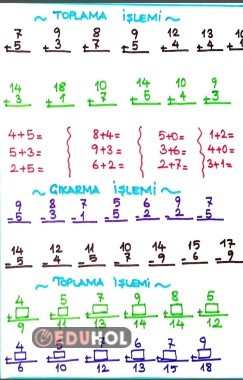 ~ TOPLAMA İŞLEMİ ~
7 9 8 9 12 13 1
+5 +3 +7 +5 +4 +4
14 18 10 14 10 9
+3 +1 +7 +5 +4 +3
4+5= 8+4= 5+0= 1+2=
5+3= 9+3= 3+6= 4+0=
2+5= 6+2= 2+7= 3+1=
~ ÇIKARMA İŞLEMİ ~
9 8 7 5 6 9 7
-5 -3 -1 -5 -2 -2 -5
14 12 11 10 14 15 17
-5 -4 -5 -7 -9 -6 -9
~ TOPLAMA İŞLEMİ ~
4 5 7 9 8 5
+ + + + + +
9 11 13 14 14 12
EDUHOL
4 5 7 6 7 9
+ + + + + +
6 10 12 13 15 18